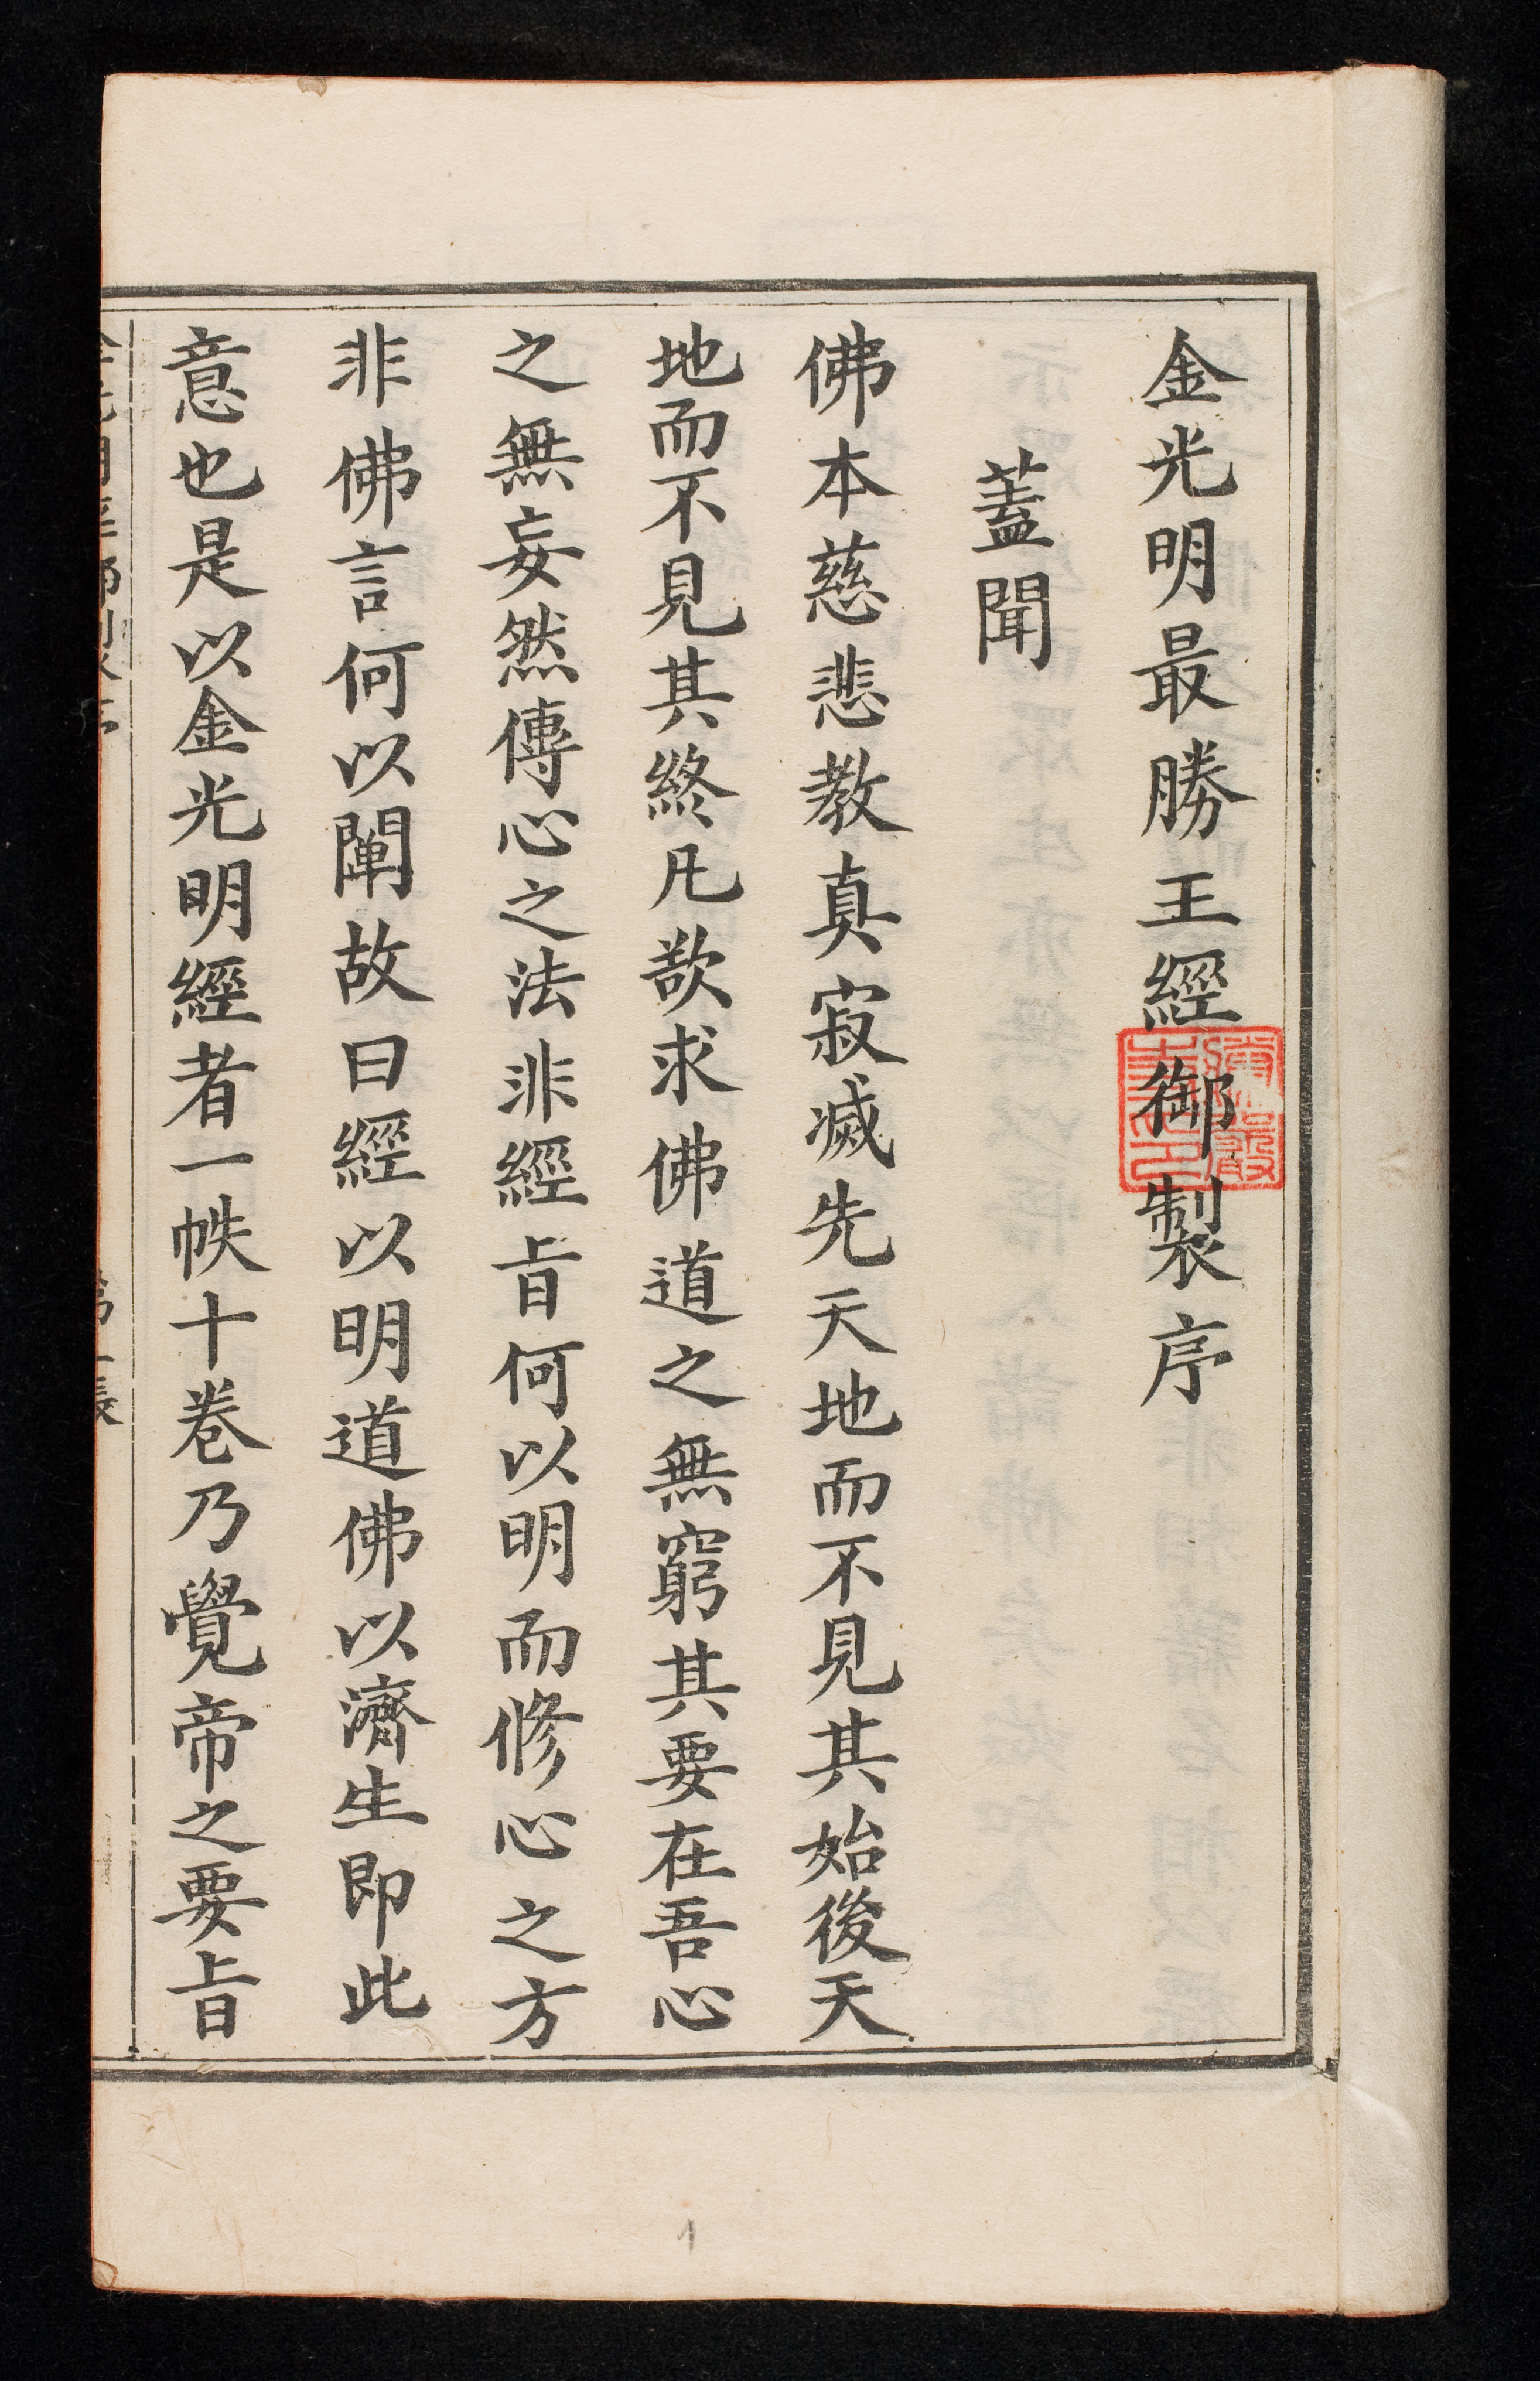 金光明最勝王經御製序
蓋聞
佛本慈悲教真寂滅先天地而不見其始後天
地而不見其終凡欲求佛道之無窮其要在吾心
之無妄然傳心之法非經旨何以明而修心之方
非佛言何以闡故曰經以明道佛以濟生即此
意也是以金光明經者一帙十卷乃覺帝之要旨